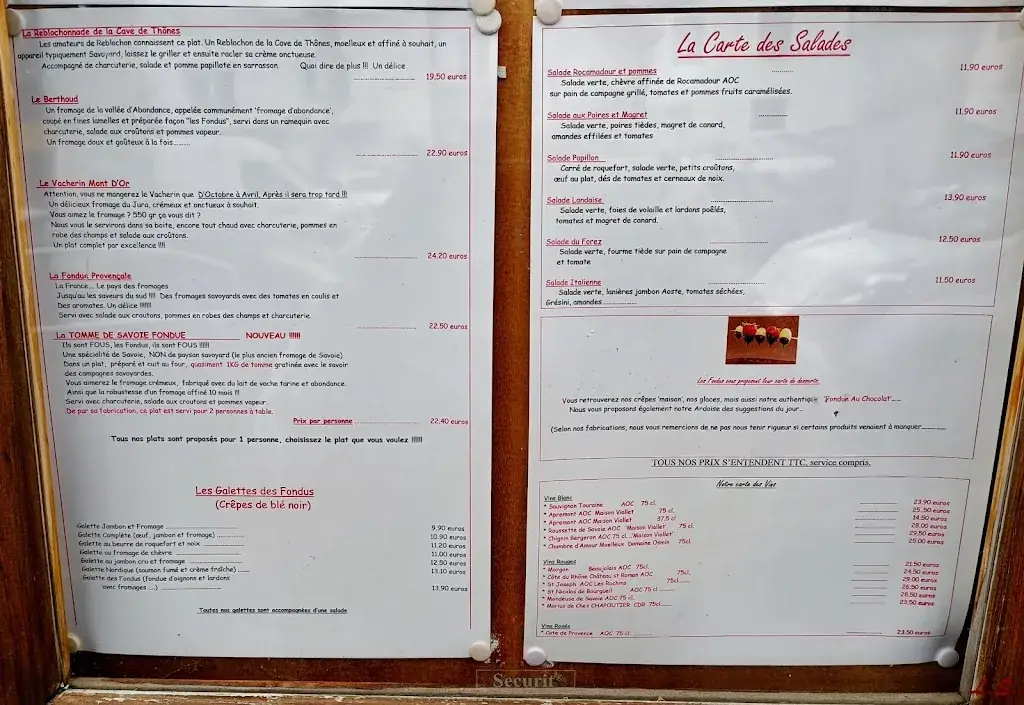 La Reblochonnade de la Cave de Thônes
Les amateurs de Reblochon connaissent ce plat. Un Reblochon de la Cave de Thônes, moelleux et affiné à souhait, un
appareil typiquement Savoyard, laissez le griller et ensuite racler sa crème onctueuse.
Accompagné de charcuterie, salade et pomme papillote en sarrasson. Quoi dire de plus !!! Un délice
19,50 euros
Le Berthoud
Un fromage de la vallée d'Abondance, appelée communément 'fromage d'abondance',
coupé en fines lamelles et préparée façon "les Fondus", servi dans un ramequin avec
charcuterie, salade aux croûtons et pommes vapeur..
Un fromage doux et goûteux à la fois.........
22,90 euros
Le Vacherin Mont D'Or
Attention, vous ne mangerez le Vacherin que D'Octobre à Avril, Après il sera trop tard !!!
Un délicieux fromage du Jura, crémeux et onctueux à souhait.
Vous aimez le fromage ? 550 gr ça vous dit ?
Nous vous le servirons dans sa boite, encore tout chaud avec charcuterie, pommes en
robe des champs et salade aux croûtons.
Un plat complet par excellence !!!!
24,20 euros
La Fondue Provençale
La France.... Le pays des fromages
Jusqu'au les saveurs du sud !!!! Des fromages savoyards avec des tomates en coulis et
Des aromates. Un délice !!!!!!!
Servi avec salade aux croutons, pommes en robes des champs et charcuterie.
22,50 euros
La TOMME DE SAVOIE FONDUE NOUVEAU !!!!!!
Ils sont FOUS, les Fondus, ils sont FOUS !!!!!!
Une spécialité de Savoie, NON de paysan savoyard (le plus ancien fromage de Savoie)
Dans un plat, préparé et cuit au four, quasiment 1KG de tomme gratinée avec le savoir
des campagnes savoyardes.
Vous aimerez le fromage crémeux, fabriqué avec du lait de vache tarine et abondance.
Ainsi que la robustesse d'un fromage affiné 10 mois !!!
Servi avec charcuterie, salade aux croutons et pommes vapeur.
De par sa fabrication, ce plat est servi pour 2 personnes à table.
Prix par personne .................... 22,40 euros
Tous nos plats sont proposés pour 1 personne, choisissez le plat que vous voulez !!!!!!
Les Galettes des Fondus
(Crêpes de blé noir)
Galette Jambon et Fromage .................... 9,90 euros
Galette Complète (œuf, jambon et fromage) .......... 10,90 euros
Galette au beurre de roquefort et noix .......... 11,20 euros
Galette au fromage de chèvre .......... 11,00 euros
Galette au jambon cru et fromage .......... 12,50 euros
Galette Nordique (saumon fumé et crème fraîche) ..... 13,10 euros
Galette des Fondus (fondue d'oignons et lardons
avec fromages ....) .......... 13,90 euros
Toutes nos galettes sont accompagnées d'une salade
La Carte des Salades
Salade Rocamadour et pommes .......... 11,90 euros
Salade verte, chèvre affinée de Rocamadour AOC
sur pain de campagne grillé, tomates et pommes fruits caramélisées.
Salade aux Poires et Magret .......... 11,90 euros
Salade verte, poires tièdes, magret de canard,
amandes effilées et tomates
Salade Papillon .......... 11,90 euros
Carré de roquefort, salade verte, petits croûtons,
œuf au plat, dés de tomates et cerneaux de noix.
Salade Landaise .......... 13,90 euros
Salade verte, foies de volaille et lardons poêlés,
tomates et magret de canard.
Salade du Forez .......... 12,50 euros
Salade verte, fourme tiède sur pain de campagne
et tomate
Salade Italienne .......... 11,50 euros
Salade verte, lanières jambon Aoste, tomates séchées,
Grésini, amandes..........
Les Fondus vous proposent leur carte de desserts.
Vous retrouverez nos crêpes 'maison', nos glaces, mais aussi notre authentique 'Fondue Au Chocolat'.....
Nous vous proposons également notre Ardoise des suggestions du jour...
(Selon nos fabrications, nous vous remercions de ne pas nous tenir rigueur si certains produits venaient à manquer..........
TOUS NOS PRIX S'ENTENDENT TTC, service compris.
Notre carte des Vins
Vins Blanc
* Sauvignon Touraine AOC 75 cl. 23,90 euros
* Apremont AOC Maison Viallet 75 cl. 25,50 euros
* Apremont AOC Maison Viallet 37,5 cl 14,50 euros
* Roussette de Savoie AOC Maison Viallet 75 cl. 28,00 euros
* Chignin Bergeron AOC 75 cl. Maison Viallet 29,50 euros
* Chambre d'Amour Moelleux Domaine 75cl. 25,00 euros
Vins Rouges
* Morgon Beaujolais AOC 75cl. 21,50 euros
* Côte du Rhône Château st Roman AOC 75cl. 24,50 euros
* St Joseph AOC Les Rochins 75cl....... 29,00 euros
* St Nicolas de Bourgueil AOC 75 cl 26,50 euros
* Mondeuse de Savoie AOC 75cl. 28,50 euros
* Marius de Chez CHAPOUTIER CDR 75cl....... 23,50 euros
Vins Rosés
* Cote de Provence AOC 75 cl. 23,50 euros
Securit